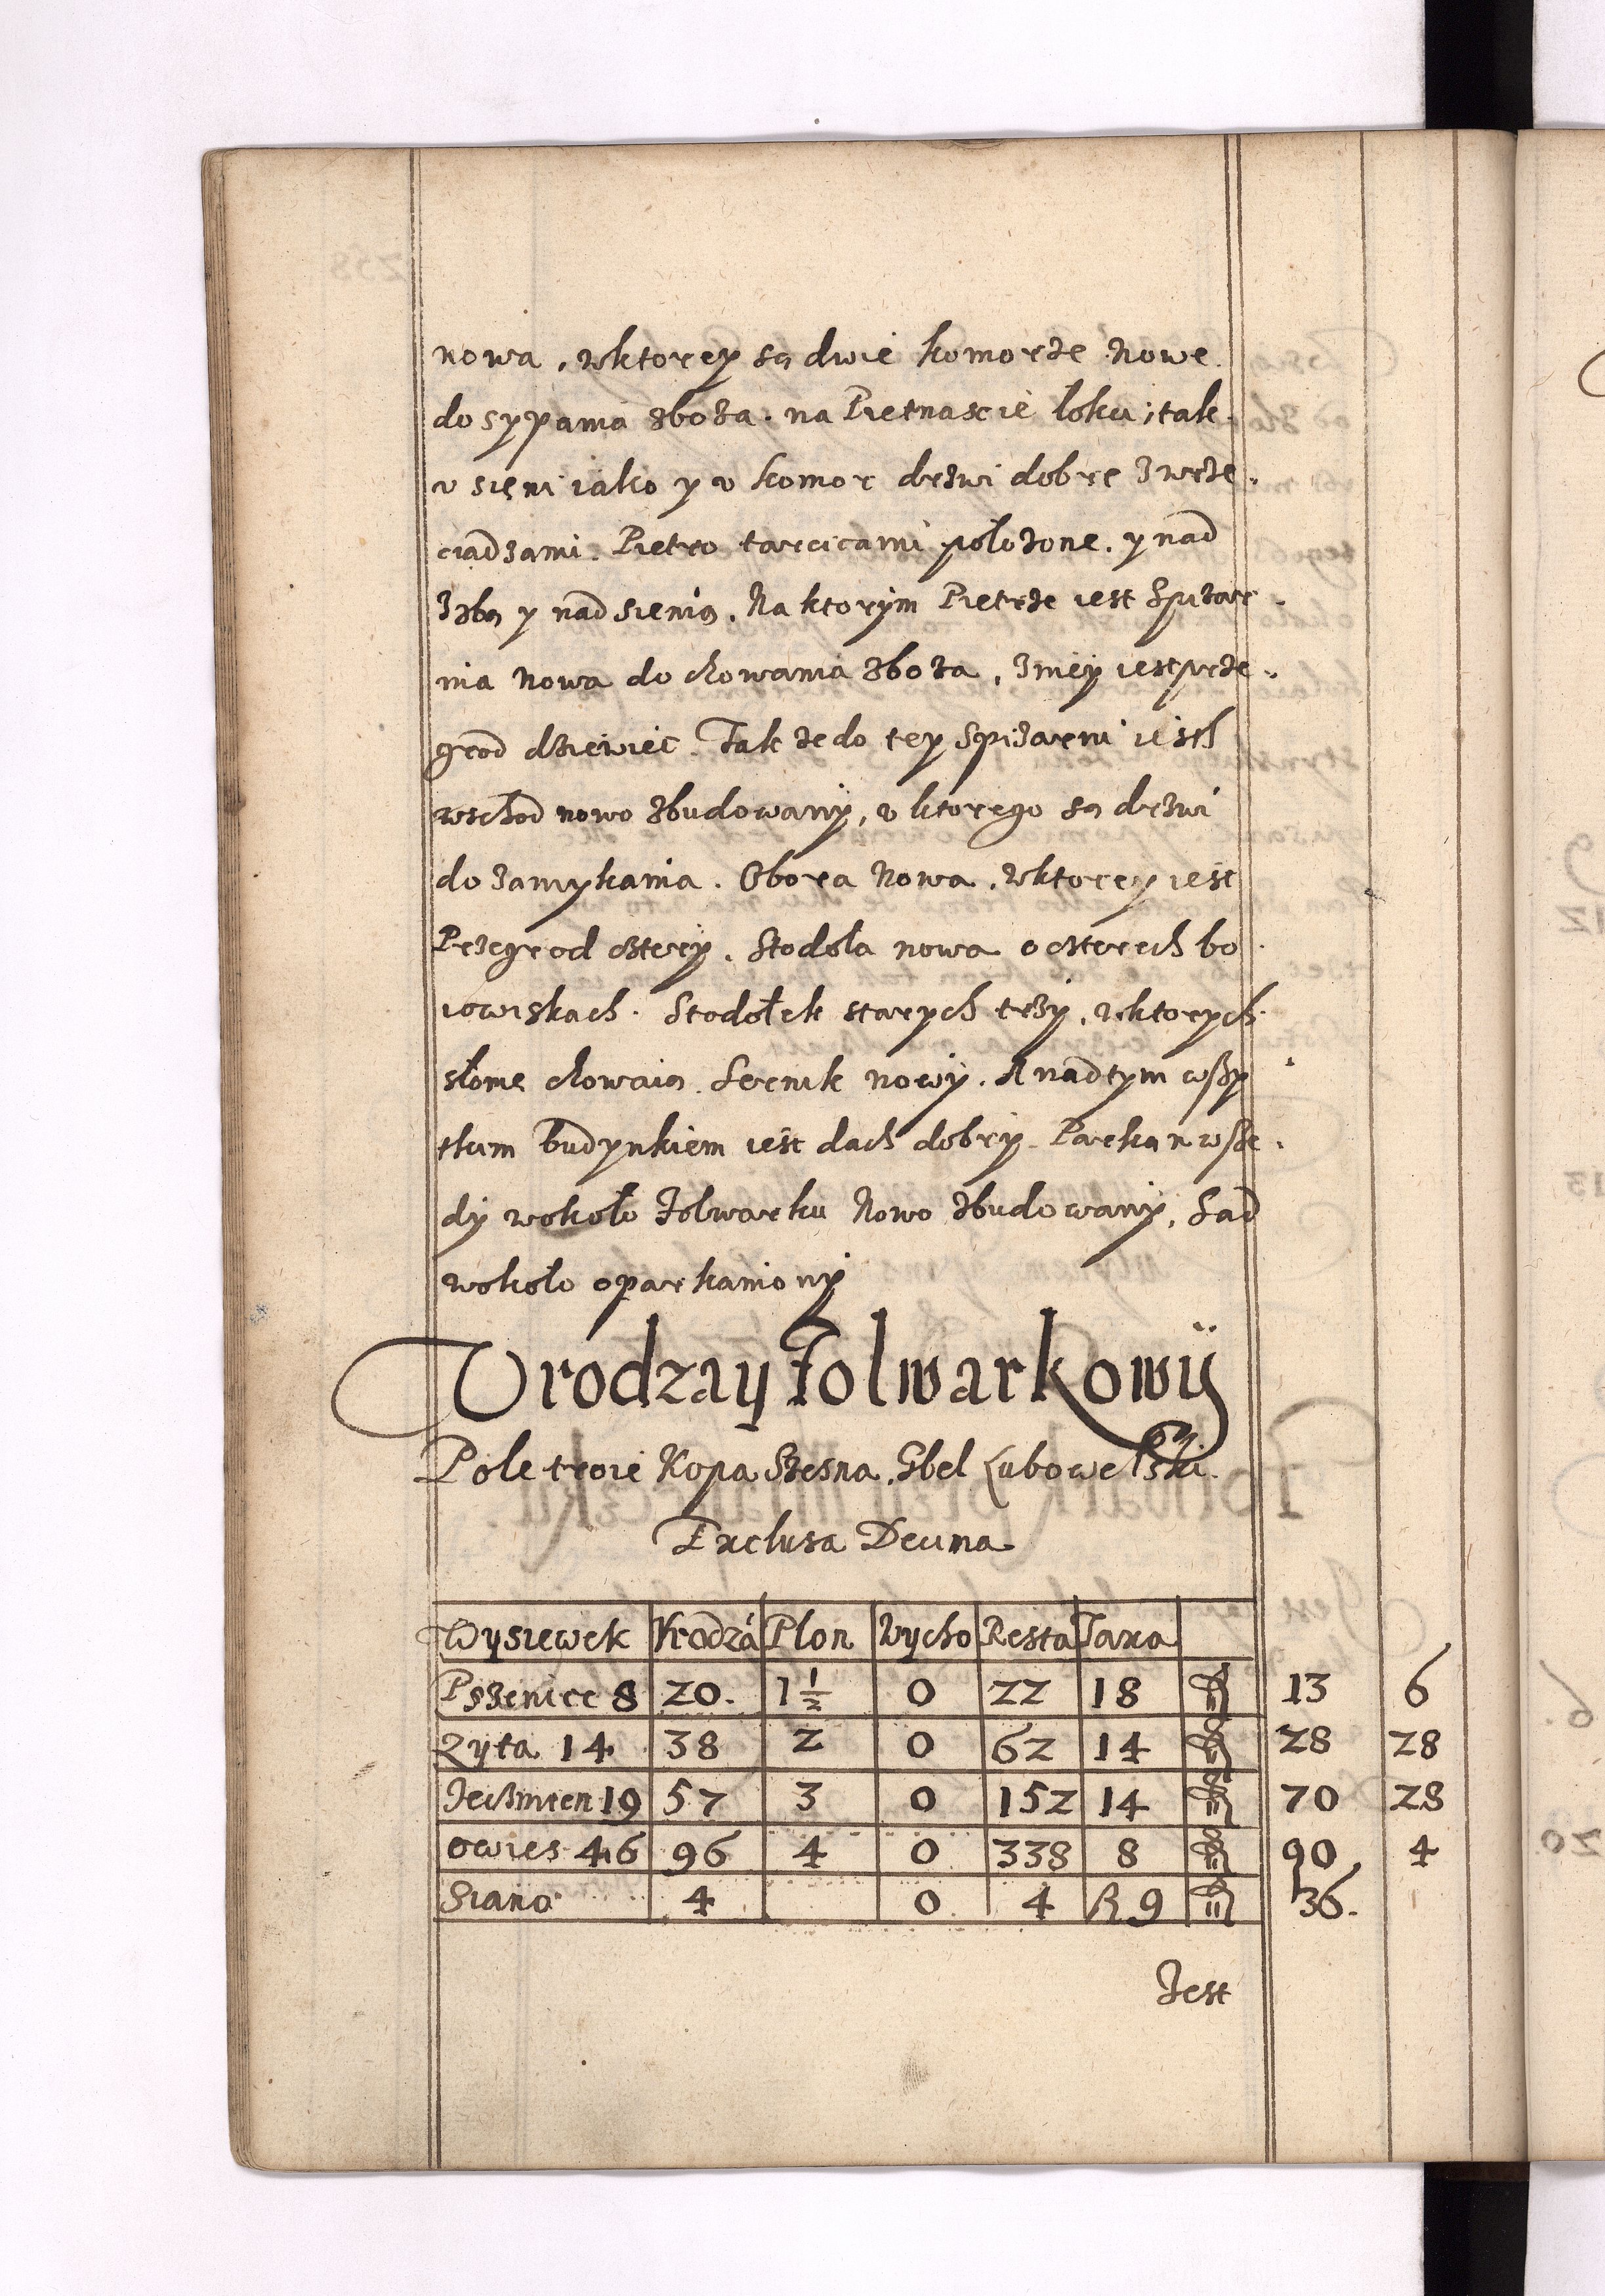 nowa, wktorey są dwie komorze nowe
do sypania zboża. na Pietnascie loku; tak
v sieni iako y v komor drzwi dobre zwrze-
ciadzami. Pietro tarcicami położone. y nad
Izbą y nad sienią. Na ktorym Pietrze iest Spizar-
nia nowa do chowania zboża, zniey iest prze-
grod dziewieć. Tak że do tey spizarni iest
wschod nowo zbudowany, v ktorego są drzwi
do zamykania. Obora nowa, wktorey iest
Przegrod cztery. Stodoła nowa o czterech bo
iowiskach. Stodołek starych trzy, wktorych
słome chowaią. Sernik nowy. A nad tym wszy
tkim budynkiem iest dach dobry. Parkan wsze-
dy wokoło Folwarku Nowo zbudowany, Sad
wokoło oparkaniony
Vrodzaÿ Folwarkowÿ
Pole troie Kopa Szesna. Gbel Lubowelski.
Exclusa Decima
Wysiewek Vrodzá Plon Wycho Resta Taxa
Pszenice 8 20. 1 1/2 0 22 18 13 6
Zyta 14 38 2 0 62 14 28 28
Jeczmien 19 57 3 0 152 14 70 28
owies 46 96 4 0 338 8 90 4
Siano 4 0 4 R 9 36.
Jest